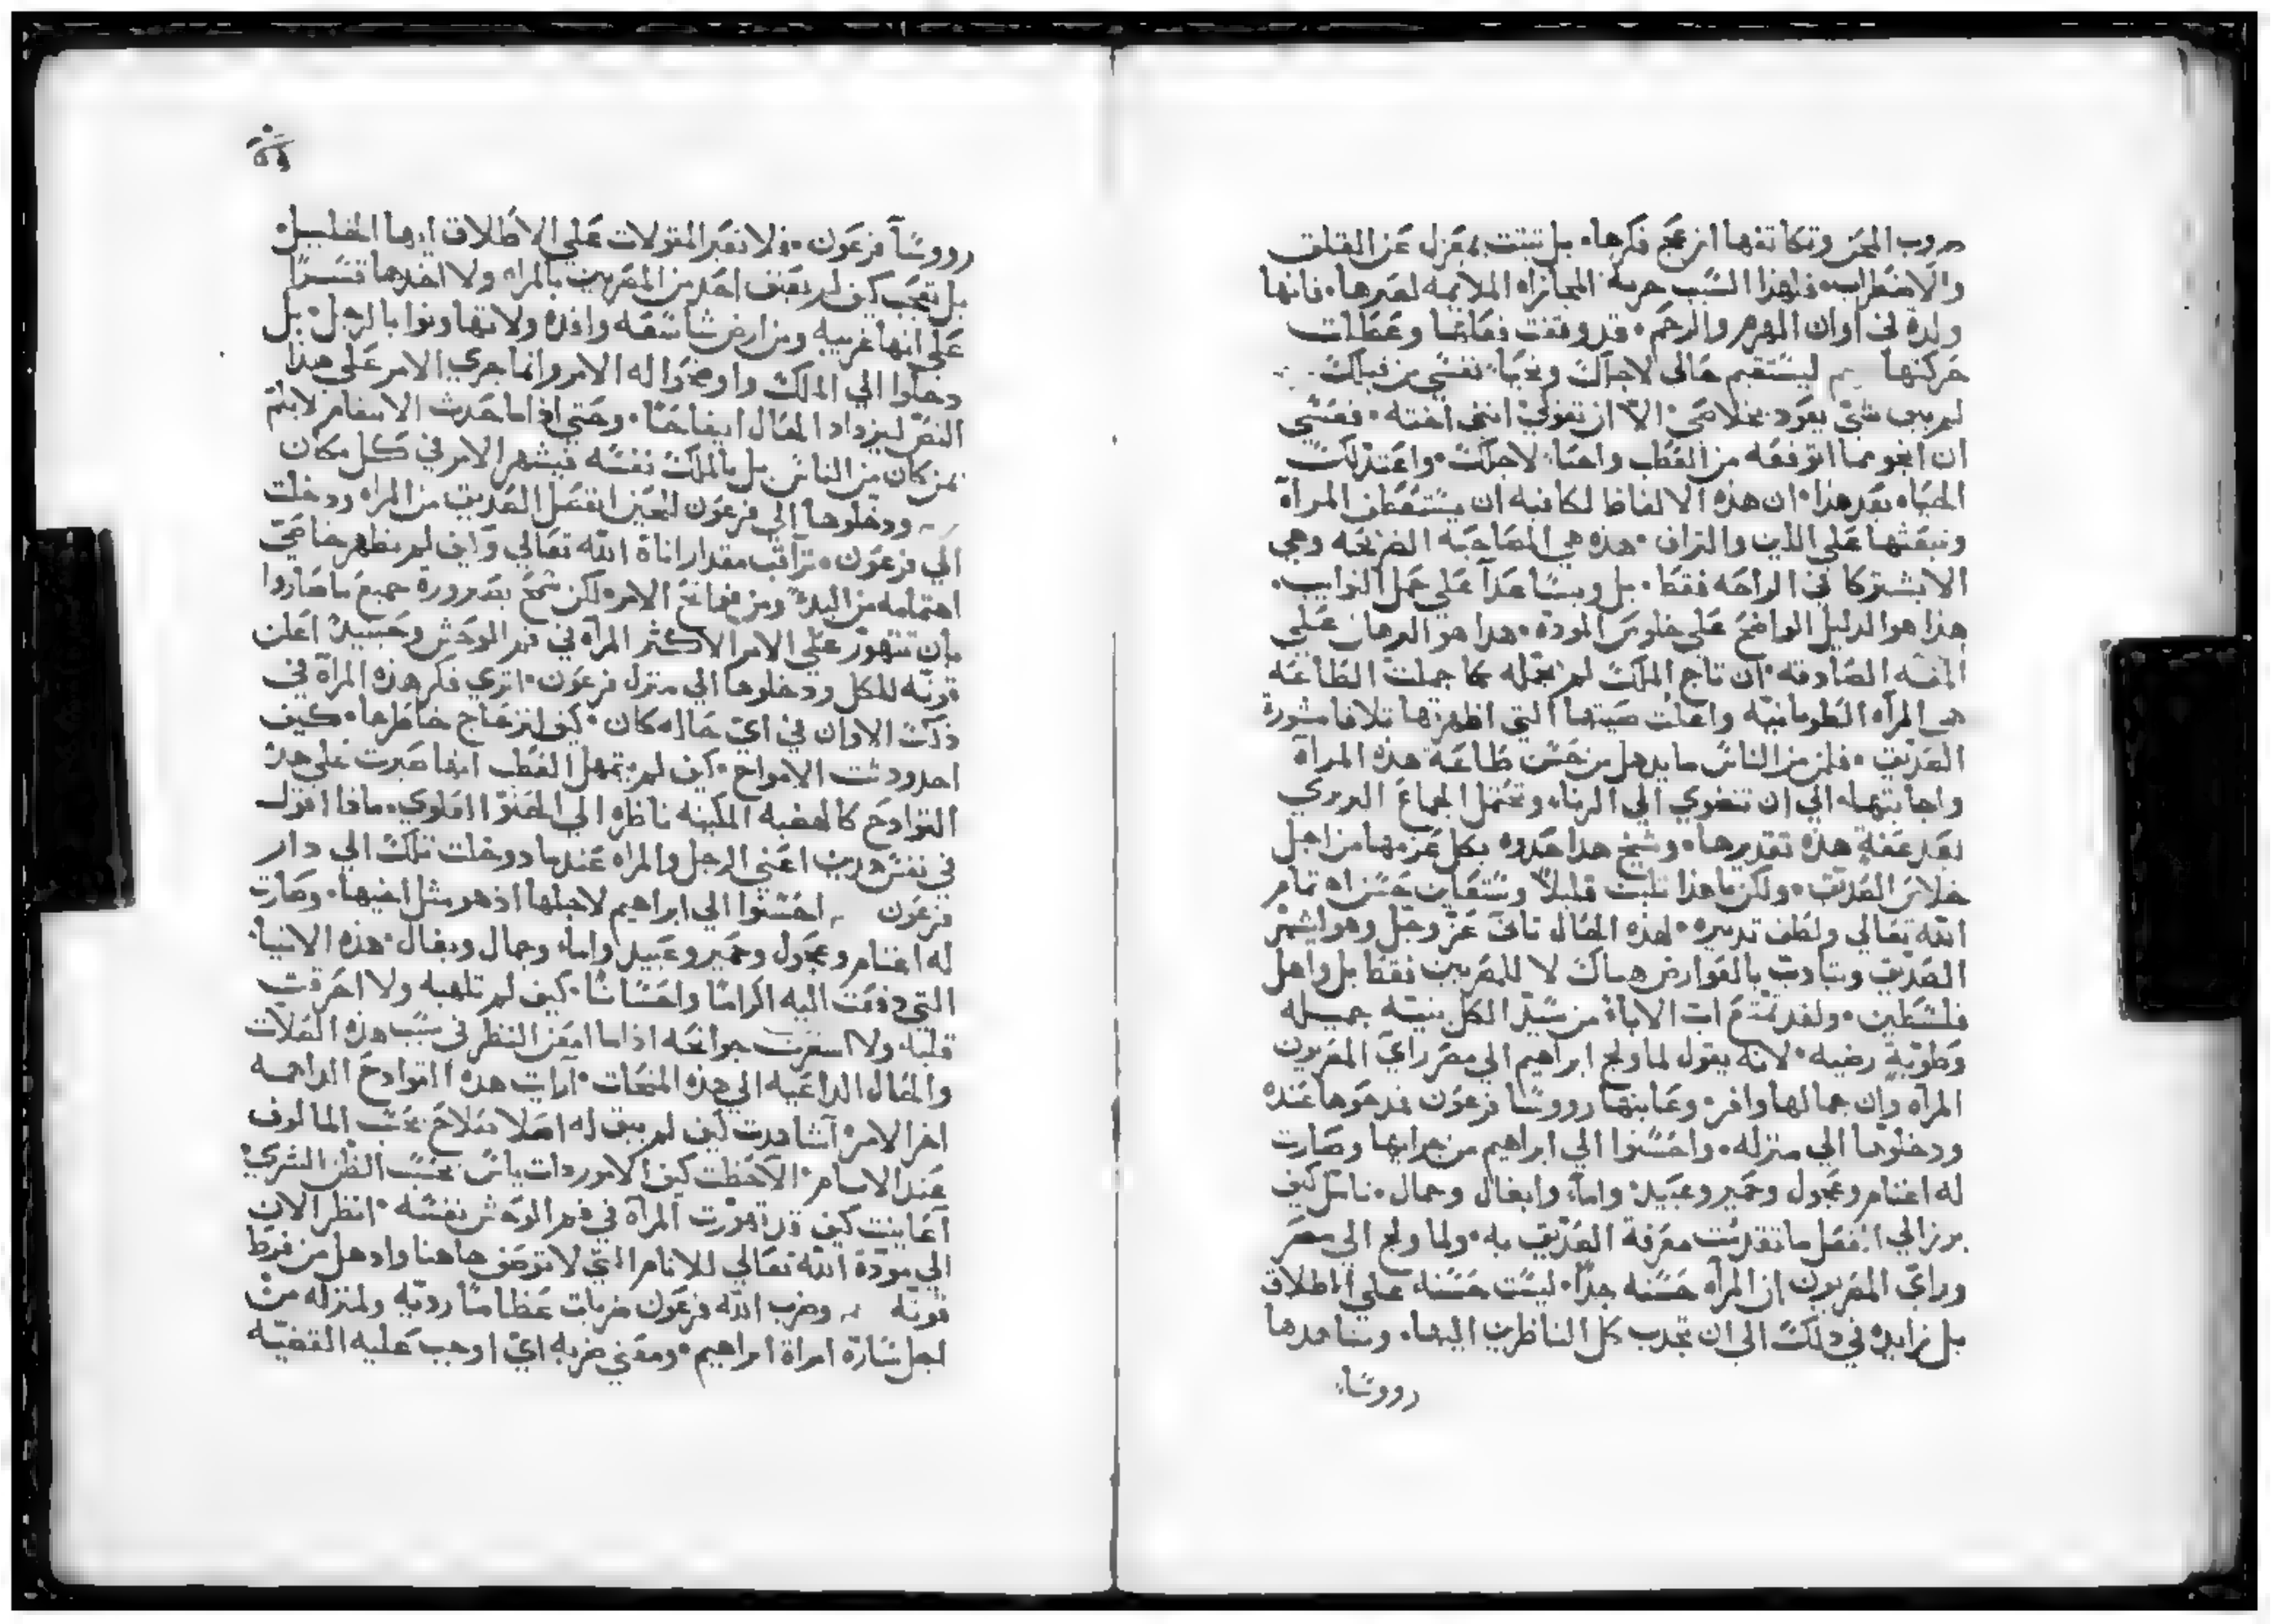 صروب المحن وتكاثفها انزعج فكرها. بل تثبت بمعزل عن القلق
والاضطراب. فلهذا السبب حربه المجازاه الملايمه لصبرها. فانها
ولده في اوان الهرم والرحم. قد وقفت نعاتها وعطلت
حركتها ليستقيم حالي لاجلك وتحيا نفسي من قبلك.
لم يبق شي يعود بخلاصي الا ان تقولي انني اخته. فعسى
ان انجو مما اتوقعه من العطب واحيا لاجلك. واعتد لك
الحياه بعد هذا. ان هذه الالفاظ لكافيه ان يستعطف المراه
وتبعثها على اللين والتراف. هذه هي المصاحبه الصريحه وهي
الا يشتركا في الراحه فقط. بل ويتساعدا على حمل النوايب.
هذا هو الدليل الواضح على خلوص المودة. هذا هو البرهان على
المقه الصادقه. ان تاج الملك لم يجمله كما جملت الطاعه
هذه المراه الطوبانيه واعلت صيتها التي اظهرتها تلقا مشورة
الصديق. فلمن من الناس ما يدهل من حسن طاعة هذه المراه
واجابتها الي ان تنضوي الي الزنا. وتحتمل الجماع الردي
بعد عفة هذه تقديرها. وشيخ هذا قدره بكل عزمها من اجل
خلاص الصديق. ولكن ماهذا تلبث قليلا وستعاين حسن اهتمام
الله تعالي ولطف تدبيره. لهذه الحال تانى عز وجل وهو ليشهر
الصديق ويتادب بالعوارض هناك لا للمصريين فقط بل واهل
فلسطين. ولقد تمتع اب الاباء من سيد الكل بنية جميله
وطوية رضيه. لانه يقول لما ولج ابراهيم الي مصر راي المصريون
المراه وان جمالها وافر. وعاينها رووسا فرعون فمدحوها عنده
ودخلوها الي منزله. واحسنوا الي ابراهيم من جرايها وصارت
له اغنام وعجول وحمير وعبيد واماء وابغال وجمال. تامل كيف
برز الي الفعل ما تقدمت معرفة الصديق به. ولما ولج الي مصر
وراي المصريون ان المراه حسنه جدا. ليست حسناء على الاطلاق
بل زايده في ذلك الي ان تجذب كل الناظرين اليها. وشاهدها
رووسا
رووسا فرعون. فلا تعبر المقولات على الاطلاق ايها الخليل
بل تعجب كيف لم يعنف احد من المصريين بالمراه ولا اخذها قسرا
على انها غريبه ومن ارض شاسعه وافده ولا تهاونوا بالرجل. بل
دخلوا الي الملك واوضحوا له الامر وانما جري الامر على هذا
النص ليزداد الحال ايضاحا. وحتى اذا ما حدث الانتقام لا يتم
بمن كان من الناس بل بالملك نفسه فيشهر الامر في كل مكان
ودخلوها الي فرعون لحين انفصل الصديق من المراه ودخلت
الي فرعون. تراقب مقدار اناة الله تعالي واين لم يظهر خاصي
اهتمامه من البدء ومن فواتح الامر. لكن سمح بصرورة جميع ما صاروا
بان تتهور على الامر الاكثر المراه في فم الوحش وحينيذ اعلن
قوته للكل ودخلوها الي منزل فرعون. اتري فكر هذه المراة في
ذلك الاوان في اي حاله كان. كيف انزعاج خاطرها. كيف
احدودثت الامواج. كيف لم تمهل العطب انها صبرت على هذه
القوادح كالهضبه المكينه ناظره الي الحنو العلوي. ماذا اقول
في نفس هذين اعني الرجل والمراه عندما دخلت تلك الي دار
فرعون احسنوا الي ابراهيم لاجلها اذ هو مثل اخيها. وصارت
له اغنام وعجول وحمير وعبيد واماء وجمال وبغال. هذه الاشيا
التي دفعت اليه اكراما واحسانا. كيف لم تلهبه ولا احرقت
قلبه. ولا اسعرت جوانحه اذا ما امعن النظر في سبب هذه الصلات
والحال الداعيه الي هذه المنحات. ارايت هذه القوادح الداهمه
اخر الامر. اشاهدت كيف لم يبق له اصلا صلاح بحسب المالوف
عند الانام. الاحظت كيف الامور ذات ياس بحسب الظن البشري
اعاينت كيف قد تهورت المراه في فم الوحش نفسه. انظر الان
الي مودة الله تعالي للانام التي لا توصف هاهنا واذهل من فرط
قوته وضرب الله فرعون ضربات عظاما رديه ولمنزله من
اجل ساره امراة ابراهيم. ومعنى ضربه اي اوجب عليه القضيه